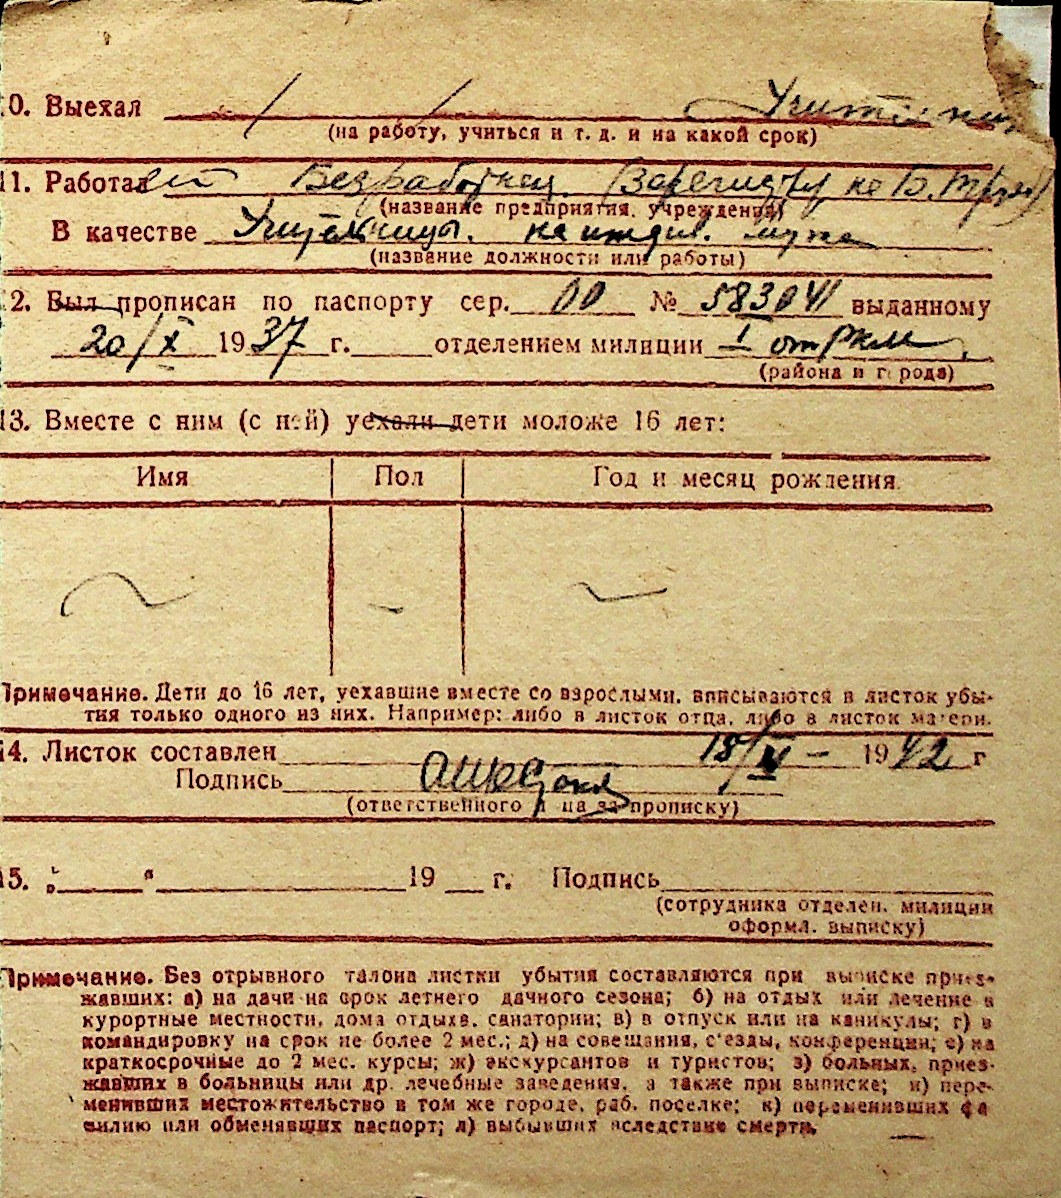 0. Выехал Учител
(на работу, учиться и т. д. и на какой срок)
11. Работает Безработная (Зарегистр на Б. Труда)
(название предприятия, учреждения)
В качестве Учительницы. на иждив. мужа
(название должности или работы)
2. Был прописан по паспорту сер. № 583041 выданному
20/X 1937 г. отделением милиции I отРКМ
(района и города)
13. Вместе с ним (с ней) уехали дети моложе 16 лет:
Имя Пол Год и месяц рождения
Примечание. Дети до 16 лет, уехавшие вместе со взрослыми, вписываются в листок убы-
тия только одного из них. Например: либо в листок отца, либо в листок матери.
14. Листок составлен 18/ – 1942 г
Подпись
(ответственного лица за прописку)
15. „ “ 19 г. Подпись
(сотрудника отделен. милиции
оформл. выписку)
Примечание. Без отрывного талона листки убытия составляются при выписке приез-
жавших: а) на дачи на срок летнего дачного сезона; б) на отдых или лечение в
курортные местности, дома отдыха, санатории; в) в отпуск или на каникулы; г) в
командировку на срок не более 2 мес.; д) на совещания, с'езды, конференции; е) на
краткосрочные до 2 мес. курсы; ж) экскурсантов и туристов; з) больных, приез-
жавших в больницы или др. лечебные заведения, а также при выписке; и) пере-
менивших местожительство в том же городе, раб. поселке; к) переменивших фа
милию или обменявших паспорт; л) выбывших вследствие смерти.